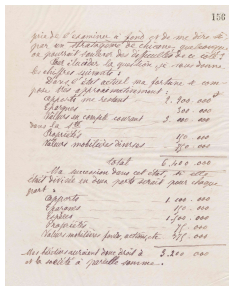 156
prié de l'examiner à fond et de me dire si,
par un stratagème de chicane quelconque,
on pourrait soulever des de ce côté?
Pour élucider la question, je vous donne
les chiffres suivants :
Dans l'état actuel ma fortune se com
pose très approximativement :
apports me restant 2.200.000
Épargnes 300.000
Valeurs en compte courant 3.000.000
dans la Sté
Propriétés 150.000
Valeurs mobilières diverses 750.000
Total 6.400.000
Ma succession dans cet état, si elle
était divisée en deux parts serait pour chaque
part :
Apports 1.100.000
Épargnes 150.000
Espèces 1.500.000
Propriétés 75.000
Valeurs mobilières 375.000
Mes héritiers auraient donc droit à 3.200.000
et la moitié à pareille somme.